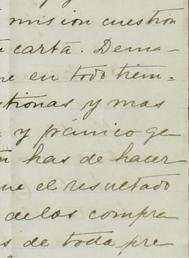 mision cuestion
carta. Dema=
ne en todo tiem=
stionas y mas
y pánico ge
has de hacer
ue el resultado
de las compre
s de toda pre